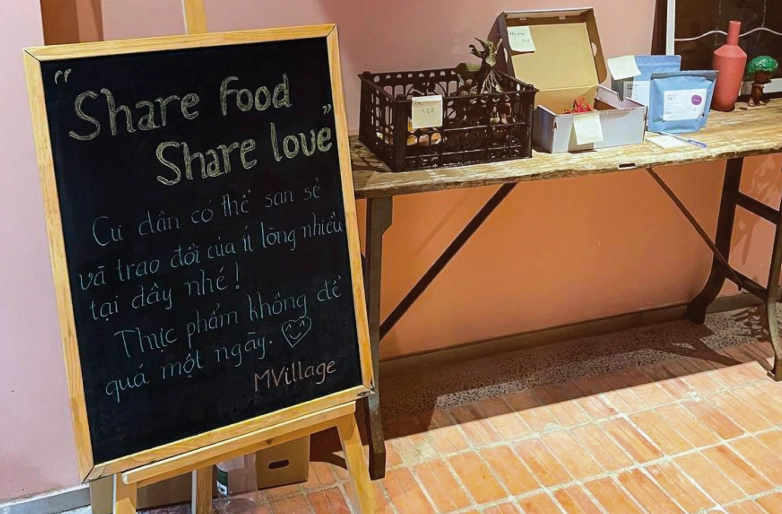 "Share food
Share love"
Cư dân có thể san sẻ
và trao đổi của ít lòng nhiều
tại đây nhé!
Thực phẩm không để
quá một ngày.
MVillage